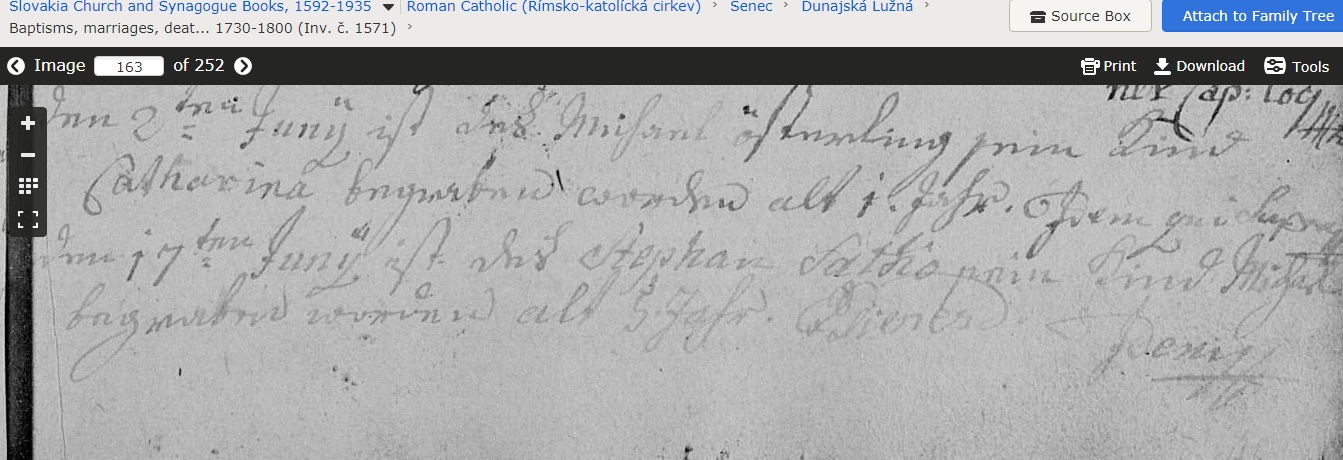 Slovakia Church and Synagogue Books, 1592-1935 Roman Catholic (Rímsko-katolícká cirkev) › Senec › Dunajská Lužná ›
Baptisms, marriages, deat... 1730-1800 (Inv. č. 1571) ›
Source Box
Attach to Family Tree
Image 163 of 252
Print Download Tools
den 2ten Juny ist des Michael österling sein Kind
Catharina begraben worden alt 1. Jahr. Idem qui supra
den 17ten Juny ist des Stephan sein Kind Michael
begraben worden alt 5 Jahr.